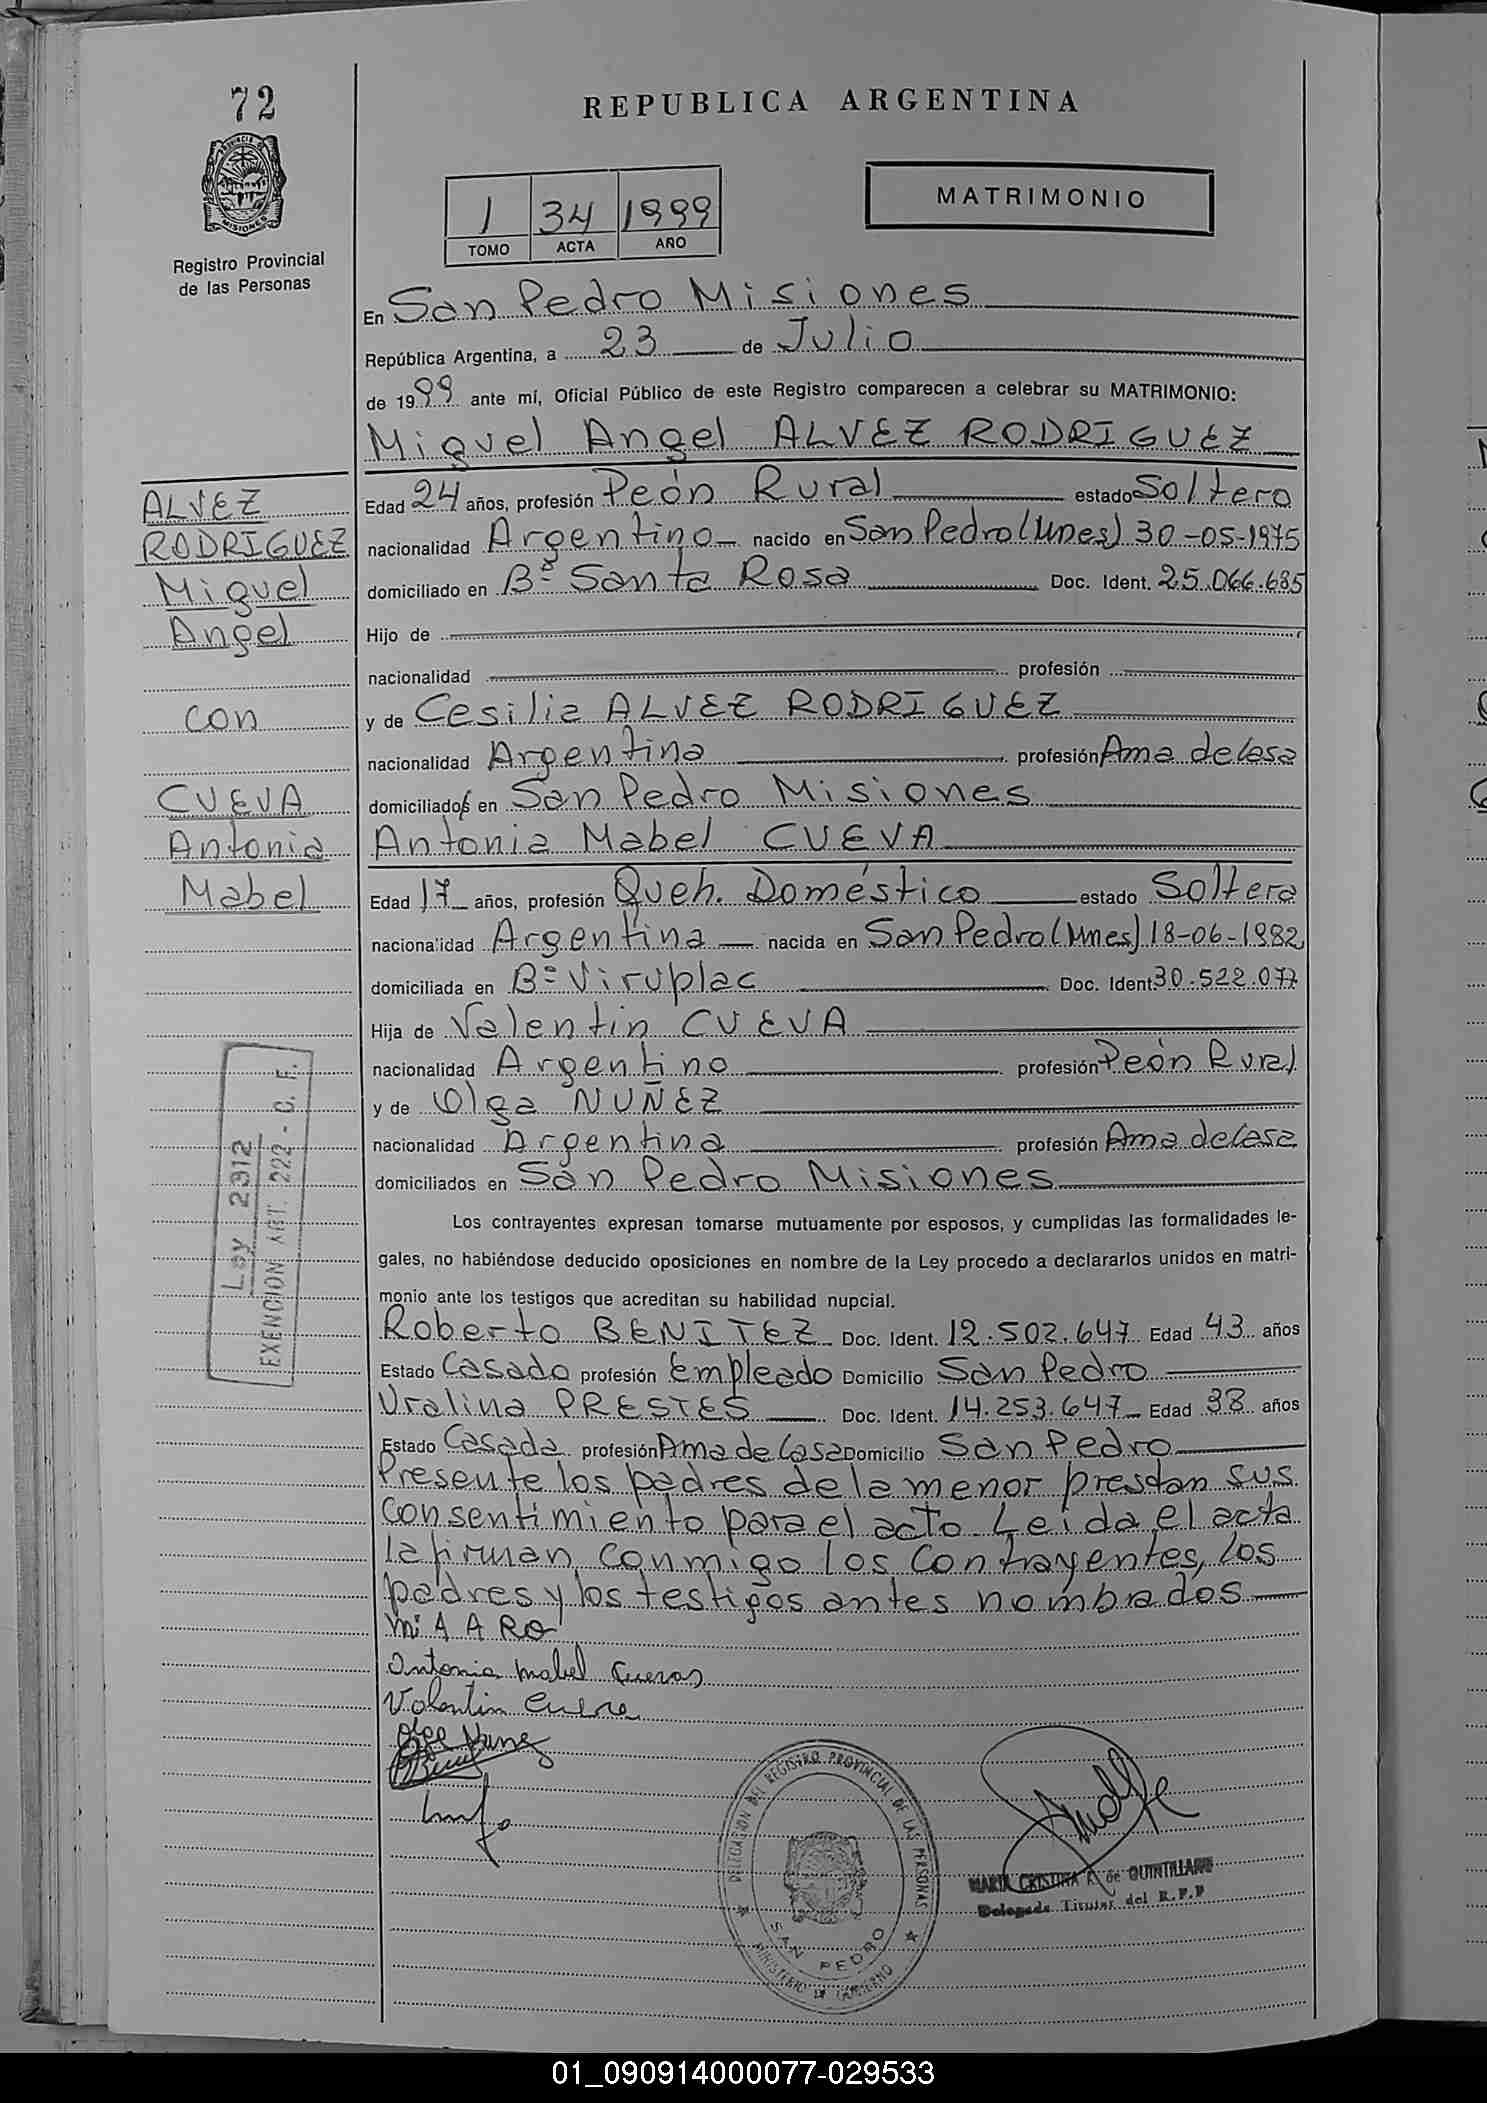 72
REPUBLICA ARGENTINA
PROVINCIA DE
MISIONES
Registro Provincial
de las Personas
1 34 1999
TOMO ACTA AÑO
MATRIMONIO
En San Pedro Misiones
República Argentina, a 23 de Julio
de 1999 ante mí, Oficial Público de este Registro comparecen a celebrar su MATRIMONIO:
Miguel Angel ALVEZ RODRIGUEZ
Edad 24 años, profesión Peón Rural estado Soltero
nacionalidad Argentino nacido en San Pedro (Mnes) 30-05-1975
domiciliado en Bº Santa Rosa Doc. Ident. 25.066.685
Hijo de
nacionalidad profesión
y de Cesilia ALVEZ RODRIGUEZ
nacionalidad Argentina profesión Ama de Casa
domiciliados en San Pedro Misiones
Antonia Mabel CUEVA
Edad 17 años, profesión Queh. Doméstico estado Soltera
nacionalidad Argentina nacida en San Pedro (Mnes) 18-06-1982
domiciliada en Bº Viruplac Doc. Ident 30.522.077
Hija de Valentin CUEVA
nacionalidad Argentino profesión Peón Rural
y de Olga NUÑEZ
nacionalidad Argentina profesión Ama de Casa
domiciliados en San Pedro Misiones
Los contrayentes expresan tomarse mutuamente por esposos, y cumplidas las formalidades le-
gales, no habiéndose deducido oposiciones en nombre de la Ley procedo a declararlos unidos en matri-
monio ante los testigos que acreditan su habilidad nupcial.
Roberto BENITEZ Doc. Ident. 12.502.647 Edad 43 años
Estado Casado profesión Empleado Domicilio San Pedro
Uralina PRESTES Doc. Ident. 14.253.647 Edad 38 años
Estado Casada profesión Ama de Casa Domicilio San Pedro
Presente los padres de la menor prestan sus
consentimiento para el acto. Leida el acta
la firman conmigo los contrayentes, los
padres y los testigos antes nombrados
Mi A A RO
Antonia Mabel Cuevas
Valentin Cueva
Olga Nunez
ALVEZ
RODRIGUEZ
Miguel
Angel
con
CUEVA
Antonia
Mabel
Ley 2312
EXENCION ART. 222 - C. F.
DELEGACION DEL REGISTRO PROVINCIAL DE LAS PERSONAS
SAN PEDRO
MINISTERIO DE GOBIERNO
MARIA CRISTINA de QUINTILLAN
Delegada Titular del R.P.P
01_090914000077-029533